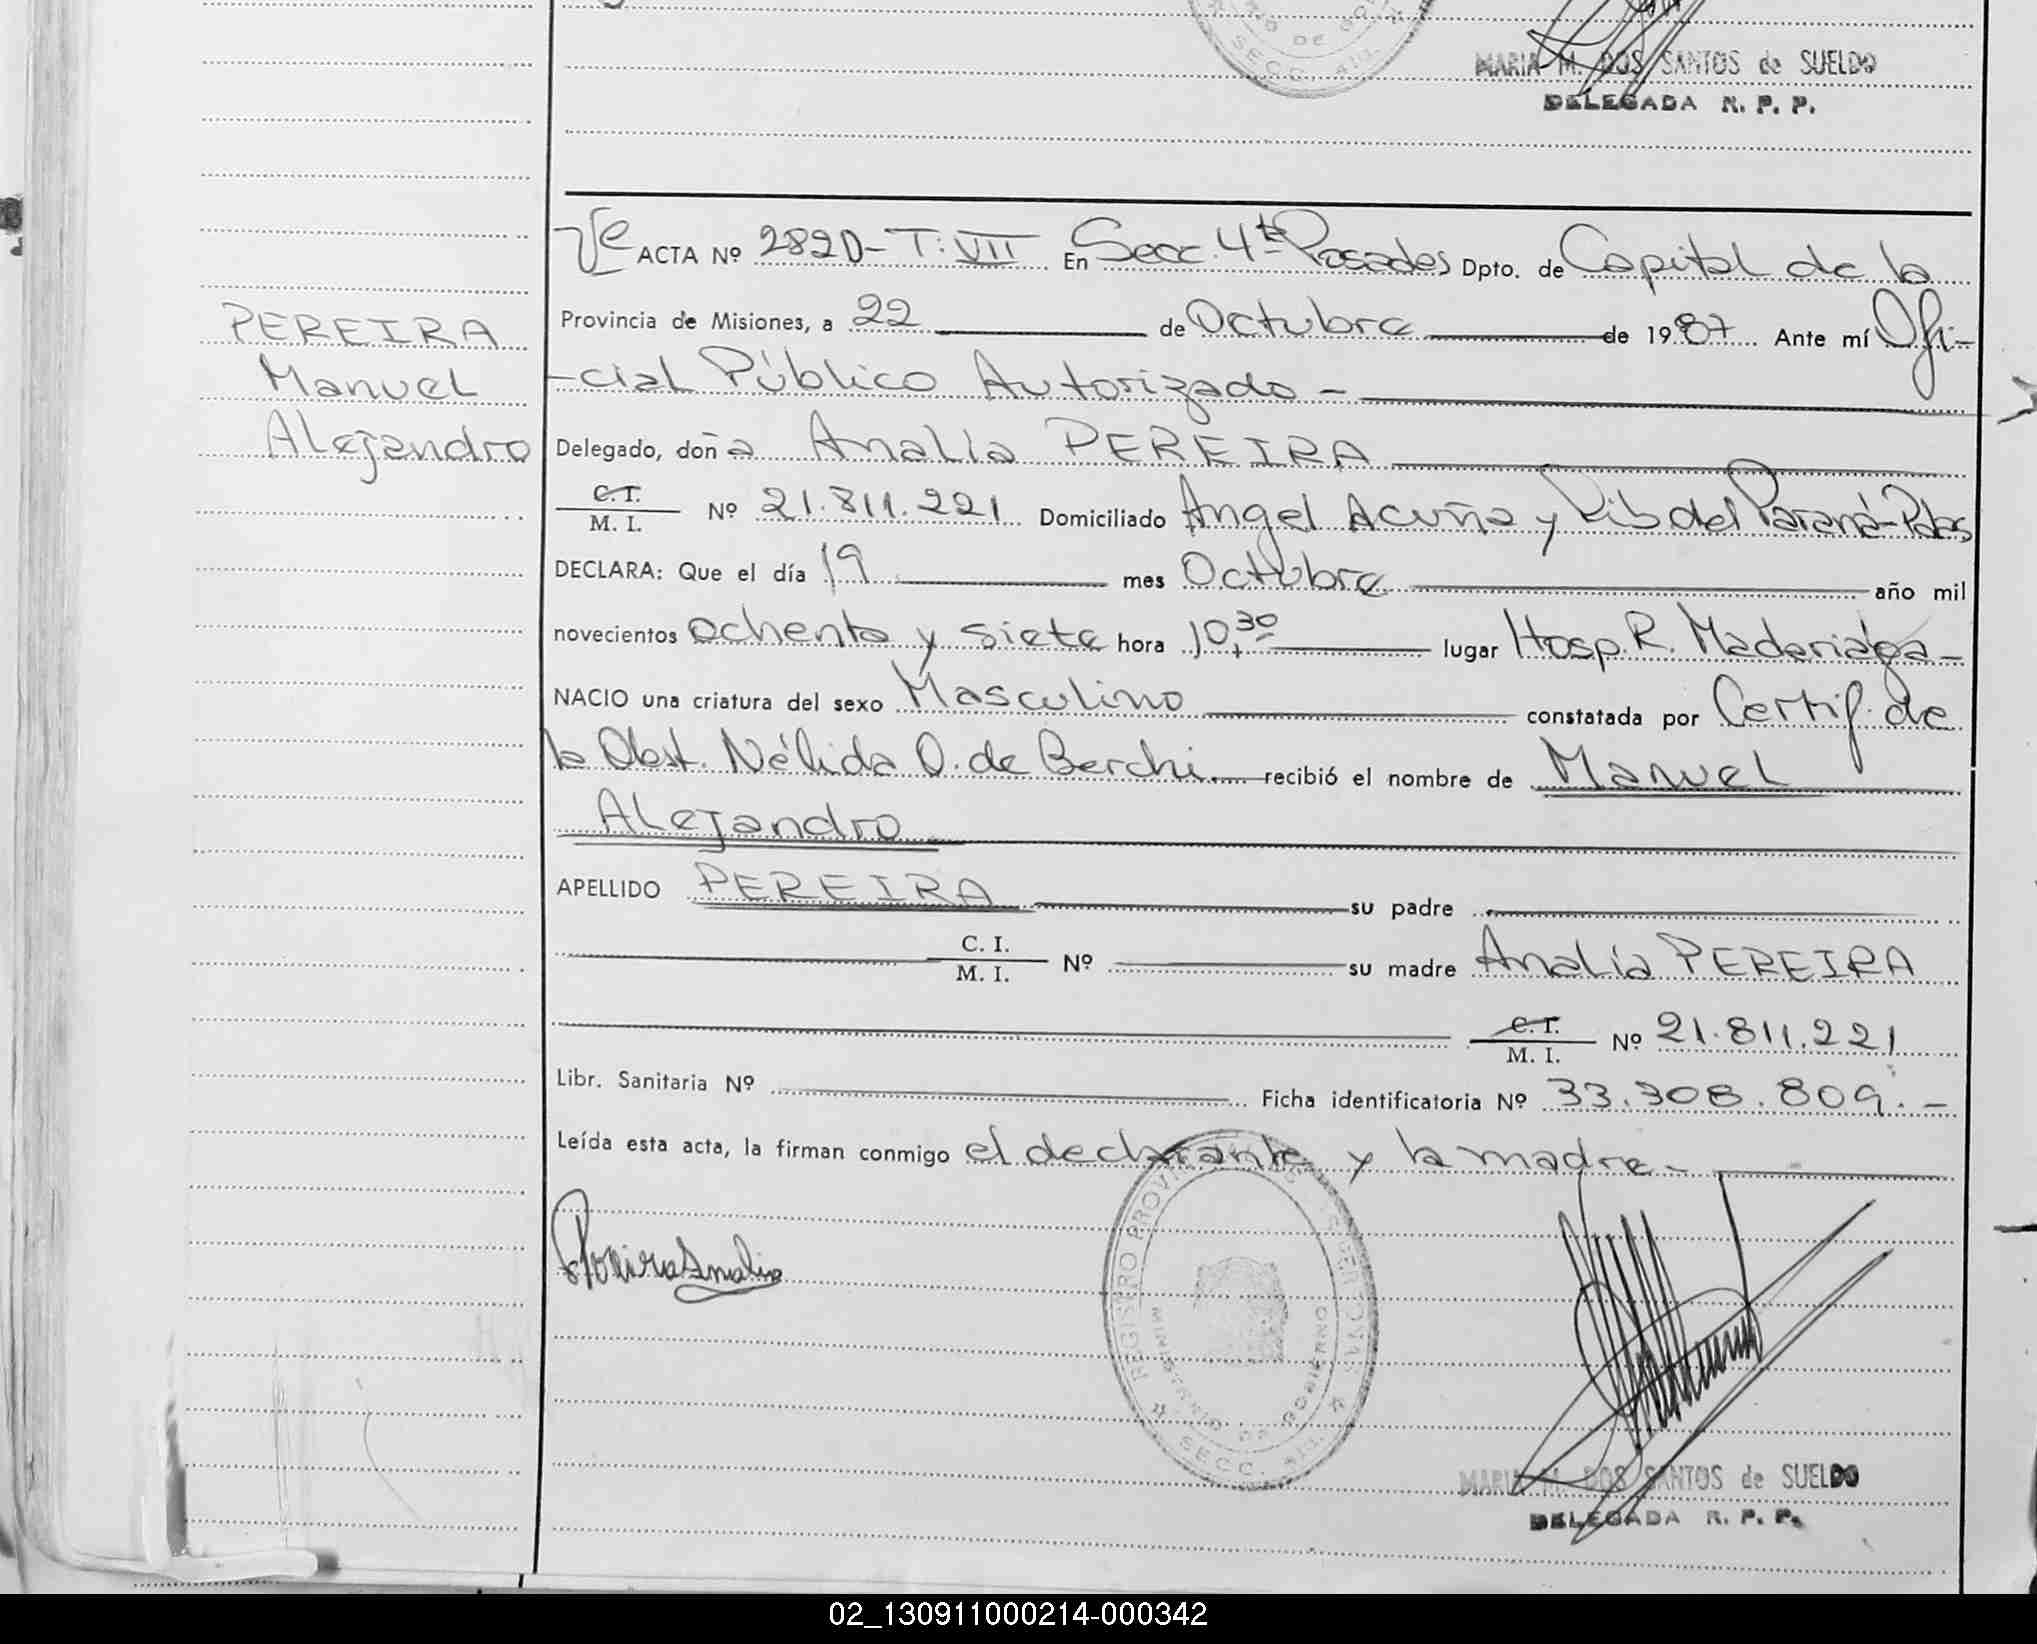 MARIA M. DOS SANTOS de SUELDO
DELEGADA R. P. P.
ACTA Nº 2820-T: VII En Secc. 4ta Posadas Dpto. de Capital de la
Provincia de Misiones, a 22 de Octubre de 1987 Ante mí Ofi-
PEREIRA
Manuel
Alejandro
-cial Público Autorizado -
Delegado, doña Analía PEREIRA
C.I.
M. I. Nº 21.811.221 Domiciliado Angel Acuña y Rib del Paraná-Pdas
DECLARA: Que el día 19 mes Octubre año mil
novecientos ochenta y siete hora 10,30 lugar Hosp. R. Madariaga-
NACIO una criatura del sexo Masculino constatada por Certif. de
la Obst. Nélida O. de Berchi recibió el nombre de Manuel
Alejandro
APELLIDO PEREIRA su padre
C. I.
M. I. Nº su madre Analía PEREIRA
C.I.
M. I. Nº 21.811.221
Libr. Sanitaria Nº Ficha identificatoria Nº 33.308.809.-
Leída esta acta, la firman conmigo el declarante y la madre.-
Pereira Analia
REGISTRO PROVINCIAL DE LAS PERSONAS
MINISTERIO DE GOBIERNO
SECC. 4ta.
MARIA M. DOS SANTOS de SUELDO
DELEGADA R. P. P.
02_130911000214-000342